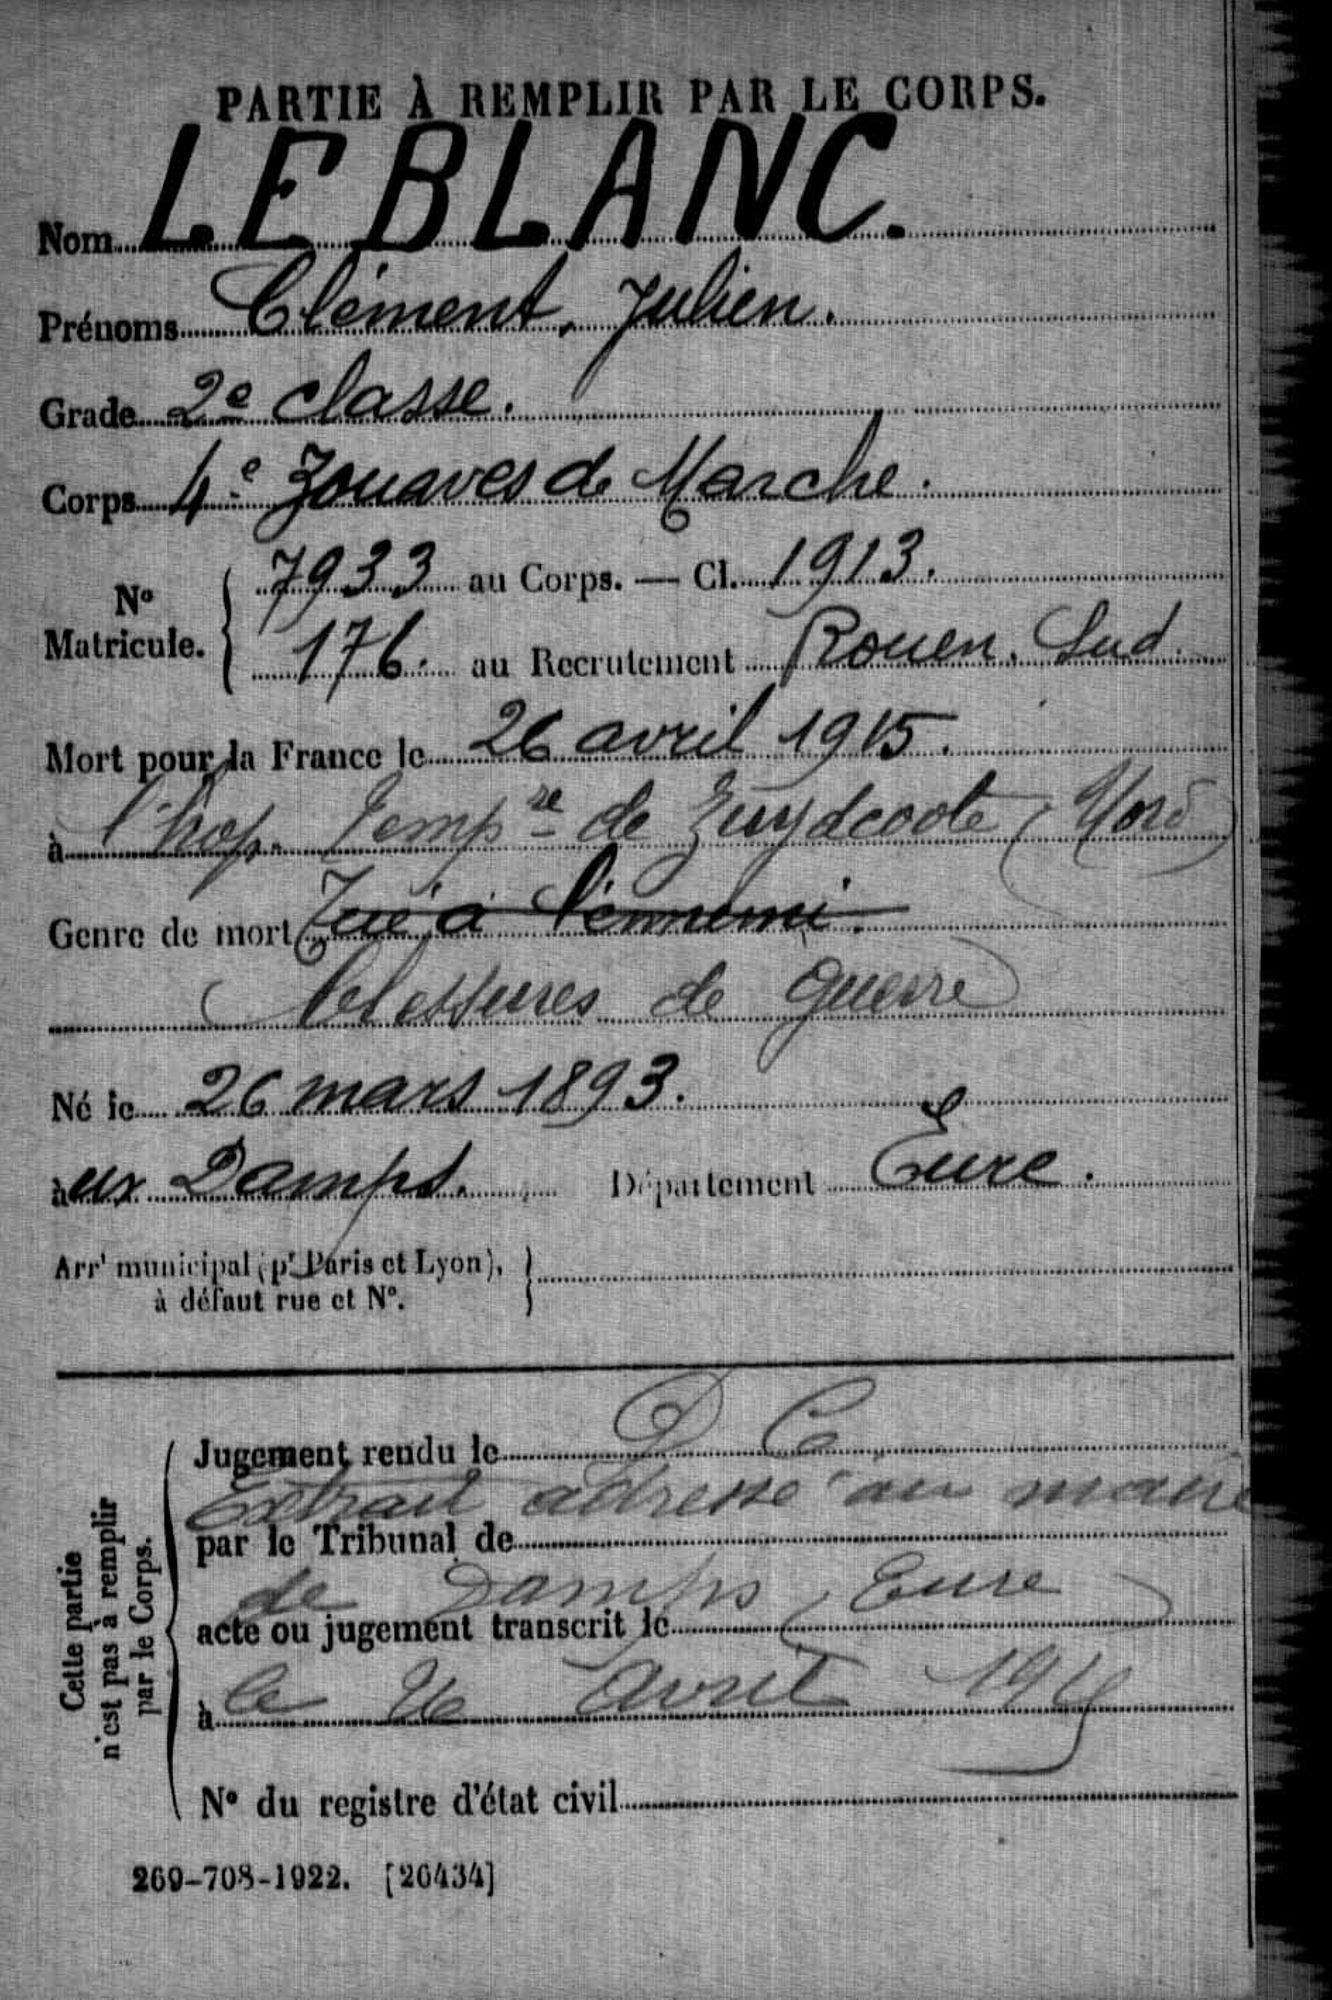 PARTIE À REMPLIR PAR LE CORPS.
Nom LEBLANC.
Prénoms Clément, Julien.
Grade 2e classe.
Corps 4e Zouaves de Marche.
No Matricule. { 7933 au Corps. — Cl. 1913.
176. au Recrutement Rouen. Sud.
Mort pour la France le 26 avril 1915.
à l'hop. tempre de Zuydcoote (Nord)
Genre de mort Tué à l'ennemi.
(blessures de guerre)
Né le 26 mars 1893.
aux Damps. Département Eure.
Arrt municipal (pr Paris et Lyon), }
à défaut rue et No.
Cette partie
n'est pas à remplir
par le Corps.
Jugement rendu le D C
Extrait adressé au maire
par le Tribunal de
de Damps (Eure)
acte ou jugement transcrit le
à le 26 avril
No du registre d'état civil
269-708-1922. [26434]